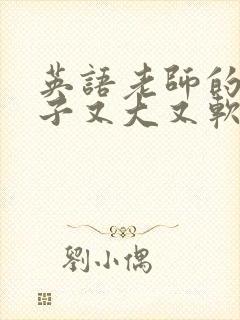 英語老師的
子又大又軟
劉小偶